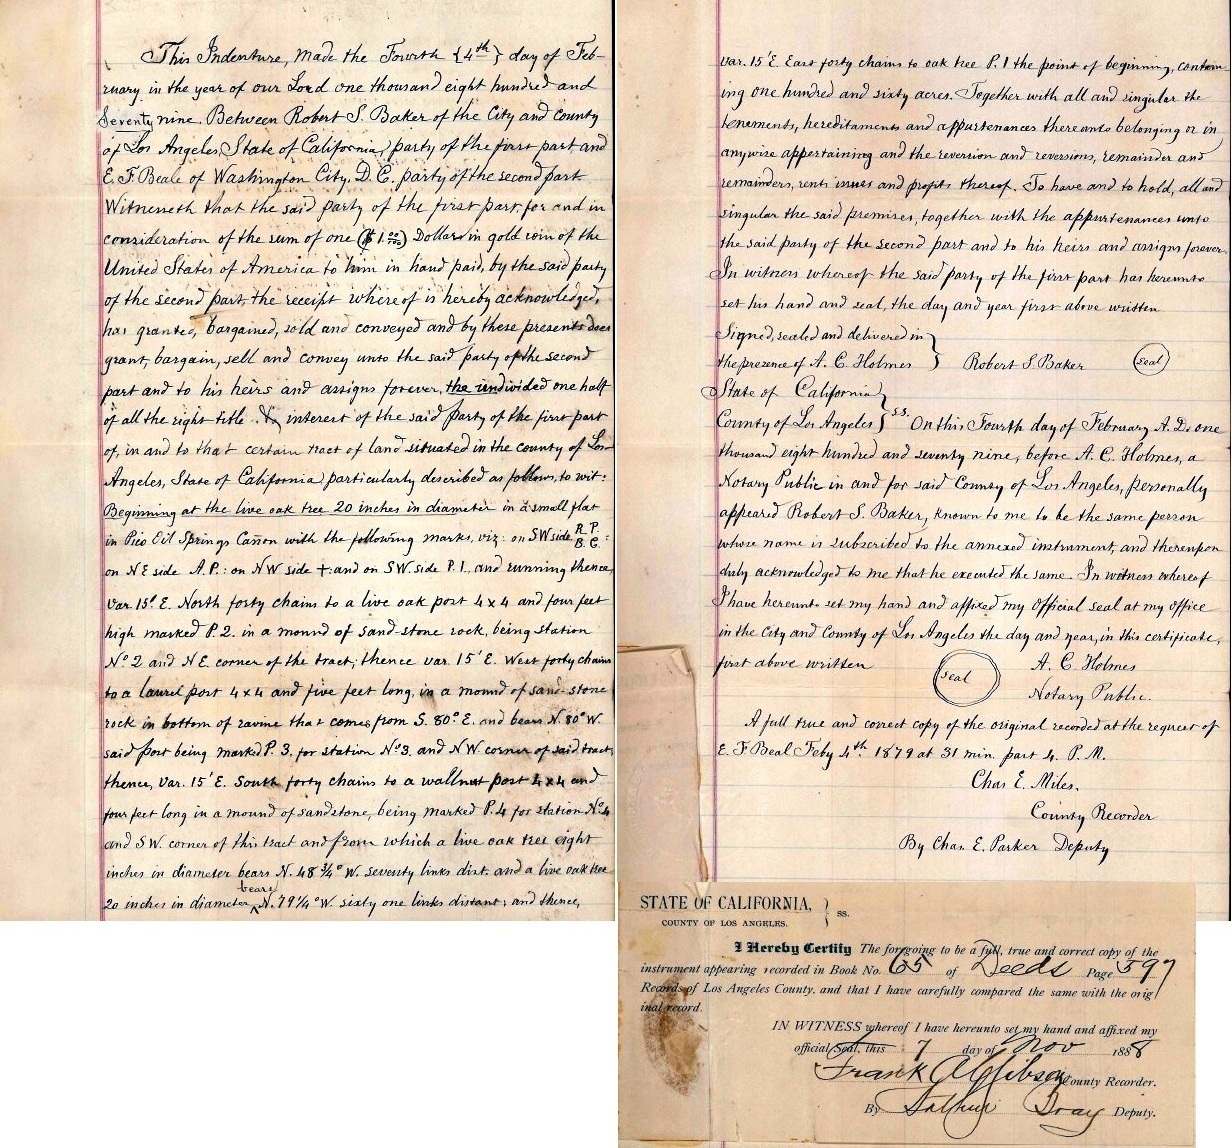 This Indenture, made the Fourth {4th} day of Feb-
ruary in the year of our Lord one thousand eight hundred and
Seventy nine. Between Robert S. Baker of the City and county
of Los Angeles, State of California, party of the first part and
E. F. Beale of Washington City, D.C. party of the second part
Witnesseth that the said party of the first part, for and in
consideration of the sum of one ($1.00/100) Dollars in gold coin of the
United States of America to him in hand paid, by the said party
of the second part, the receipt whereof is hereby acknowledged,
has granted, bargained, sold and conveyed and by these presents does
grant, bargain, sell and convey unto the said party of the second
part and to his heirs and assigns forever, the undivided one half
of all the right title & interest of the said party of the first part
of, in and to that certain tract of land situated in the county of Los
Angeles, State of California, particularly described as follows, to wit:
Beginning at the live oak tree 20 inches in diameter in a small flat
in Pico Oil Springs Cañon with the following marks, viz: on SW side R.P. B.C.:
on NE side A.P.: on NW side +: and on SW side P.1. and running thence,
Var. 15° E. North forty chains to a live oak post 4x4 and four feet
high marked P.2. in a mound of sand-stone rock, being station
No 2 and NE corner of the tract; thence var. 15' E. West forty chains
to a laurel post 4x4 and five feet long, in a mound of sand-stone
rock in bottom of ravine that comes from S. 80° E. and bears N. 80° W.
said post being marked P. 3. for station No 3. and NW. corner of said tract,
thence, Var. 15' E. South forty chains to a wallnut post 4x4 and
four feet long in a mound of sandstone, being marked P.4 for station No 4
and SW. corner of this tract and from which a live oak tree eight
inches in diameter bears N. 48 3/4° W. seventy links dist. and a live oak tree
20 inches in diameter bears N. 79 1/4° W. sixty one links distant; and thence,
var. 15' E. East forty chains to oak tree P. 1 the point of beginning, contain-
ing one hundred and sixty acres. Together with all and singular the
tenements, hereditaments and appurtenances thereunto belonging or in
anywise appertaining and the reversion and reversions, remainder and
remainders, rents issues and profits thereof. To have and to hold, all and
singular the said premises, together with the appurtenances unto
the said party of the second part and to his heirs and assigns forever.
In witness whereof the said party of the first part has hereunto
set his hand and seal, the day and year first above written
Signed, sealed and delivered in }
the presence of A. C. Holmes } Robert S. Baker (seal)
State of California }
County of Los Angeles } ss. On this Fourth day of February A.D. one
thousand eight hundred and seventy nine, before A. C. Holmes, a
Notary Public in and for said County of Los Angeles, personally
appeared Robert S. Baker, known to me to be the same person
whose name is subscribed to the annexed instrument, and thereupon
duly acknowledged to me that he executed the same. In witness whereof
I have hereunto set my hand and affixed my official seal at my office
in the City and County of Los Angeles the day and year, in this certificate,
first above written (seal) A. C. Holmes
Notary Public.
A full true and correct copy of the original recorded at the request of
E. F Beal Feby 4th. 1879 at 31 min. part 4. P.M.
Chas E. Miles.
County Recorder
By Chas. E. Parker Deputy
STATE OF CALIFORNIA, } ss.
COUNTY OF LOS ANGELES.
I Hereby Certify The foregoing to be a full, true and correct copy of the
instrument appearing recorded in Book No. 65 of Deeds Page 597
Records of Los Angeles County, and that I have carefully compared the same with the orig
inal record.
IN WITNESS whereof I have hereunto set my hand and affixed my
official Seal, this 7 day of Nov 1888
Frank A Gibson County Recorder.
By Arthur Bray Deputy.